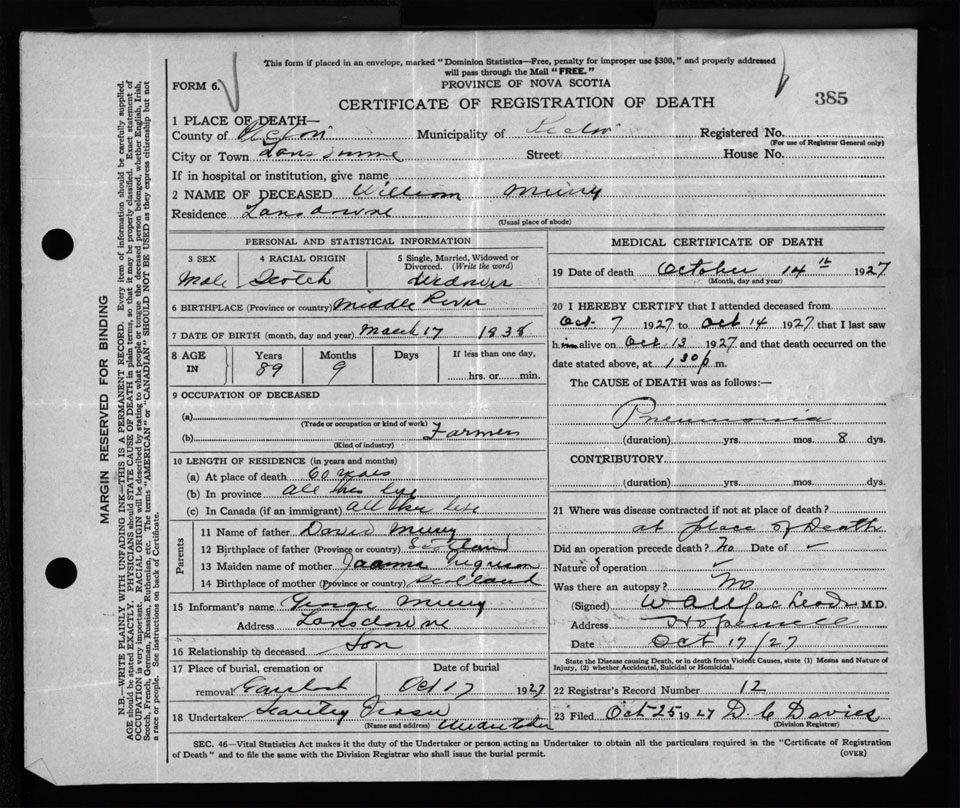 This form if placed in an envelope, marked "Dominion Statistics—Free, penalty for improper use $300," and properly addressed
will pass through the Mail "FREE."
FORM 6.
PROVINCE OF NOVA SCOTIA
CERTIFICATE OF REGISTRATION OF DEATH
385
1 PLACE OF DEATH—
County of Pictou Municipality of Pictou Registered No.
(For use of Registrar General only)
City or Town Lansdowne Street House No.
If in hospital or institution, give name
2 NAME OF DECEASED William
Residence Lansdowne
(Usual place of abode)
PERSONAL AND STATISTICAL INFORMATION
3 SEX 4 RACIAL ORIGIN 5 Single, Married, Widowed or Divorced. (Write the word)
Male Scotch Widower
6 BIRTHPLACE (Province or country) Middle River
7 DATE OF BIRTH (month, day and year) March 17 1838
8 AGE IN Years Months Days If less than one day,
89 9 hrs. or min.
9 OCCUPATION OF DECEASED
(a)
(Trade or occupation or kind of work)
(b) Farmer
(Kind of industry)
10 LENGTH OF RESIDENCE (in years and months)
(a) At place of death 60 years
(b) In province all his life
(c) In Canada (if an immigrant) all his life
Parents
11 Name of father David
12 Birthplace of father (Province or country) Scotland
13 Maiden name of mother
14 Birthplace of mother (Province or country) Scotland
15 Informant's name George
Address Lansdowne
16 Relationship to deceased Son
17 Place of burial, cremation or Date of burial
removal Oct 17 1927
18 Undertaker
(Name and address) Undertaker
MEDICAL CERTIFICATE OF DEATH
19 Date of death October 14th 1927
(Month, day and year)
20 I HEREBY CERTIFY that I attended deceased from
Oct 7 1927 to Oct 14 1927 that I last saw
him alive on Oct 13 1927 and that death occurred on the
date stated above, at 1 30 p m.
The CAUSE of DEATH was as follows:—
Pneumonia
(duration) yrs. mos. 8 dys.
CONTRIBUTORY
(duration) yrs. mos. dys.
21 Where was disease contracted if not at place of death?
at place of Death
Did an operation precede death? No Date of ✓
Nature of operation ✓
Was there an autopsy? No
(Signed) M.D.
Address Hopewell
Date Oct 17/27
State the Disease causing Death, or in death from Violent Causes, state (1) Means and Nature of
Injury, (2) whether Accidental, Suicidal or Homicidal.
22 Registrar's Record Number 12
23 Filed Oct 25 1927 D C Davies
(Division Registrar)
SEC. 46—Vital Statistics Act makes it the duty of the Undertaker or person acting as Undertaker to obtain all the particulars required in the "Certificate of Registration
of Death" and to file the same with the Division Registrar who shall issue the burial permit.
(OVER)
MARGIN RESERVED FOR BINDING
N.B.—WRITE PLAINLY WITH UNFADING INK—THIS IS A PERMANENT RECORD. Every item of information should be carefully supplied.
AGE should be stated EXACTLY. PHYSICIANS should STATE CAUSE OF DEATH in plain terms, so that it may be properly classified. Exact statement of
OCCUPATION is very important. RACIAL ORIGIN will be described by stating to what people or tongue the deceased person belonged, whether English, Irish,
Scotch, French, German, Russian, Ruthenian, etc. The terms "AMERICAN" or "CANADIAN" SHOULD NOT BE USED as they express citizenship but not
a race or people. See instructions on back of Certificate.